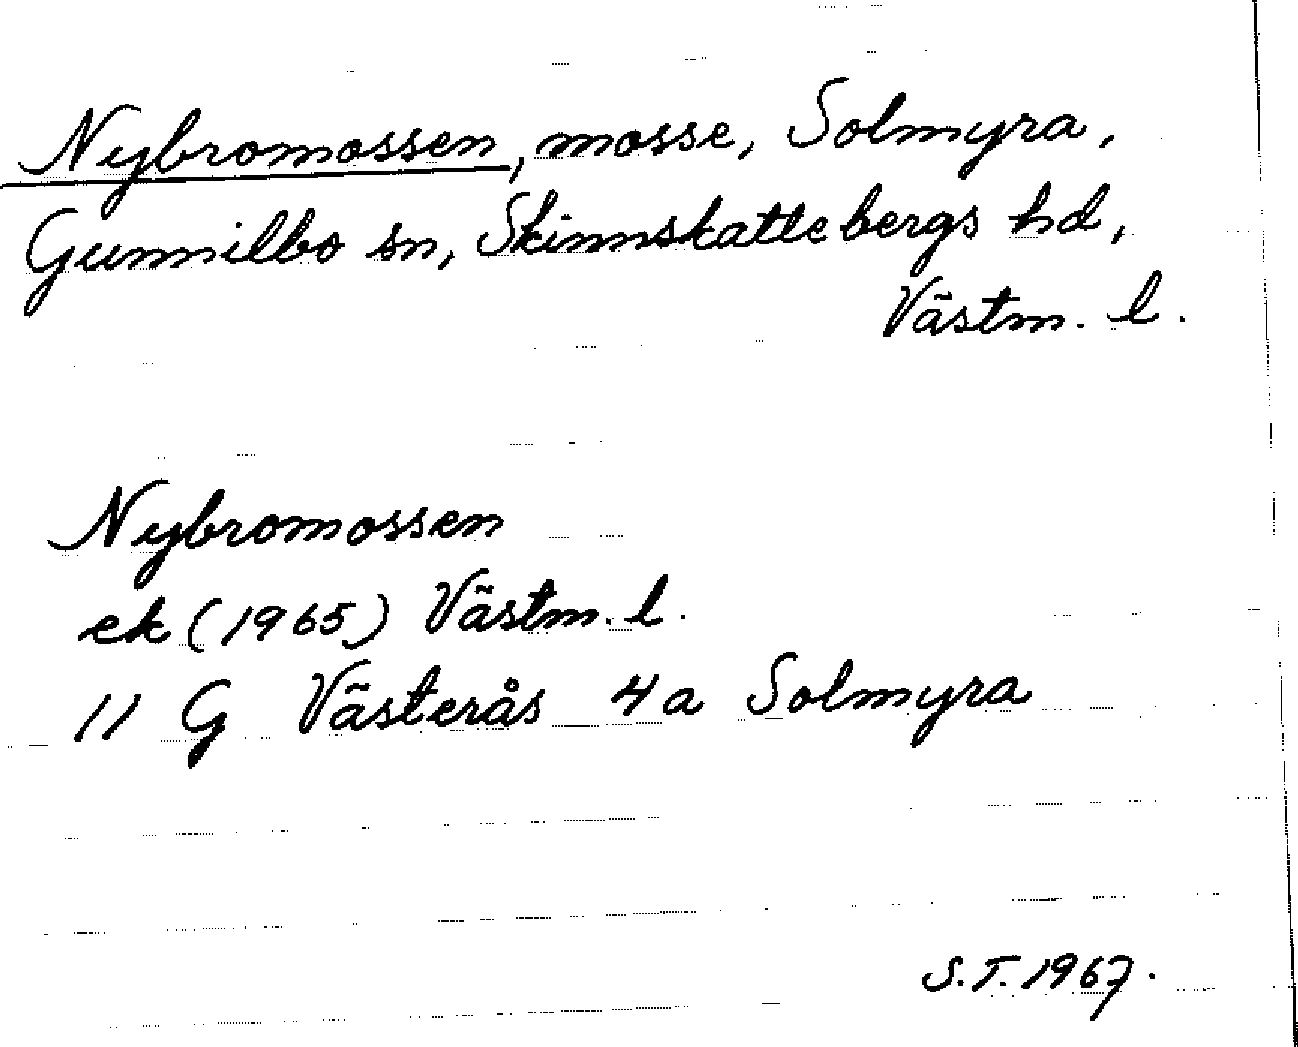 Nybromossen, mosse, Solmyra,
Gunnilbo sn, Skinnskattebergs hd,
Västm. l.
Nybromossen
ek (1965) Västm. l.
11 G Västerås 4a Solmyra
S.T. 1967.